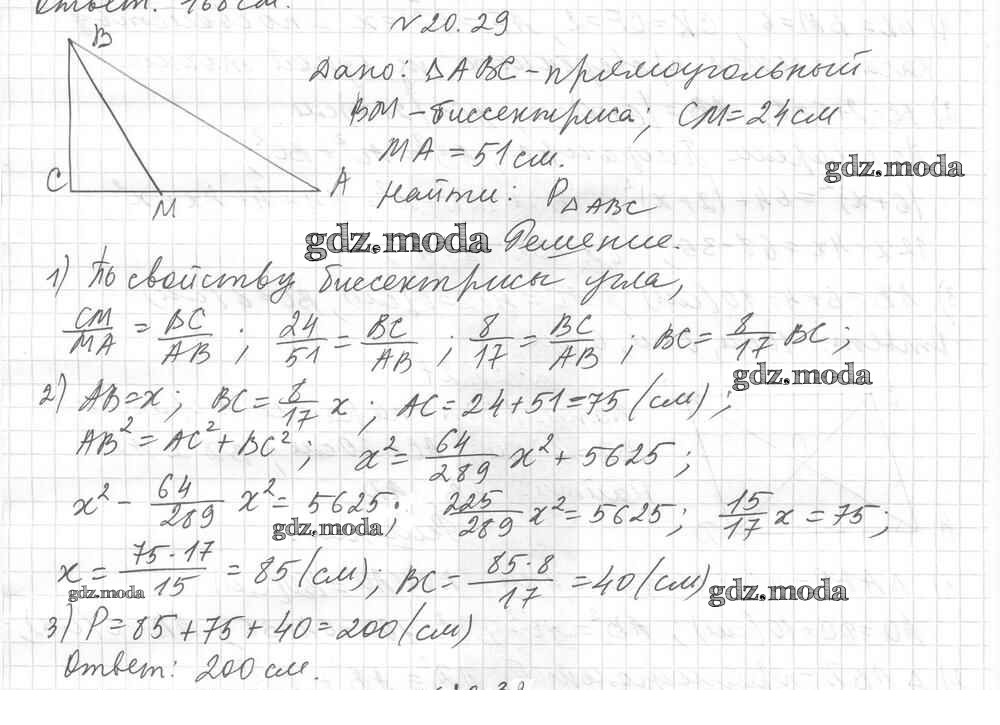 Ответ: 168 см.
№20.29
B
Дано: ΔABC – прямоугольный
BM – биссектриса; CM = 24 см
MA = 51 см.
gdz.moda
C
M
A
Найти: P ΔABC
gdz.moda
Решение.
1) По свойству биссектрисы угла,
CM/MA = BC/AB; 24/51 = BC/AB; 8/17 = BC/AB; BC = 8/17 BC;
gdz.moda
2) AB = x; BC = 8/17 x; AC = 24 + 51 = 75 (см);
AB² = AC² + BC²; x² = 64/289 x² + 5625;
x² – 64/289 x² = 5625; 225/289 x² = 5625; 15/17 x = 75;
gdz.moda
x = 75·17/15 = 85 (см); BC = 85·8/17 = 40 (см)
gdz.moda
gdz.moda
3) P = 85 + 75 + 40 = 200 (см)
Ответ: 200 см.